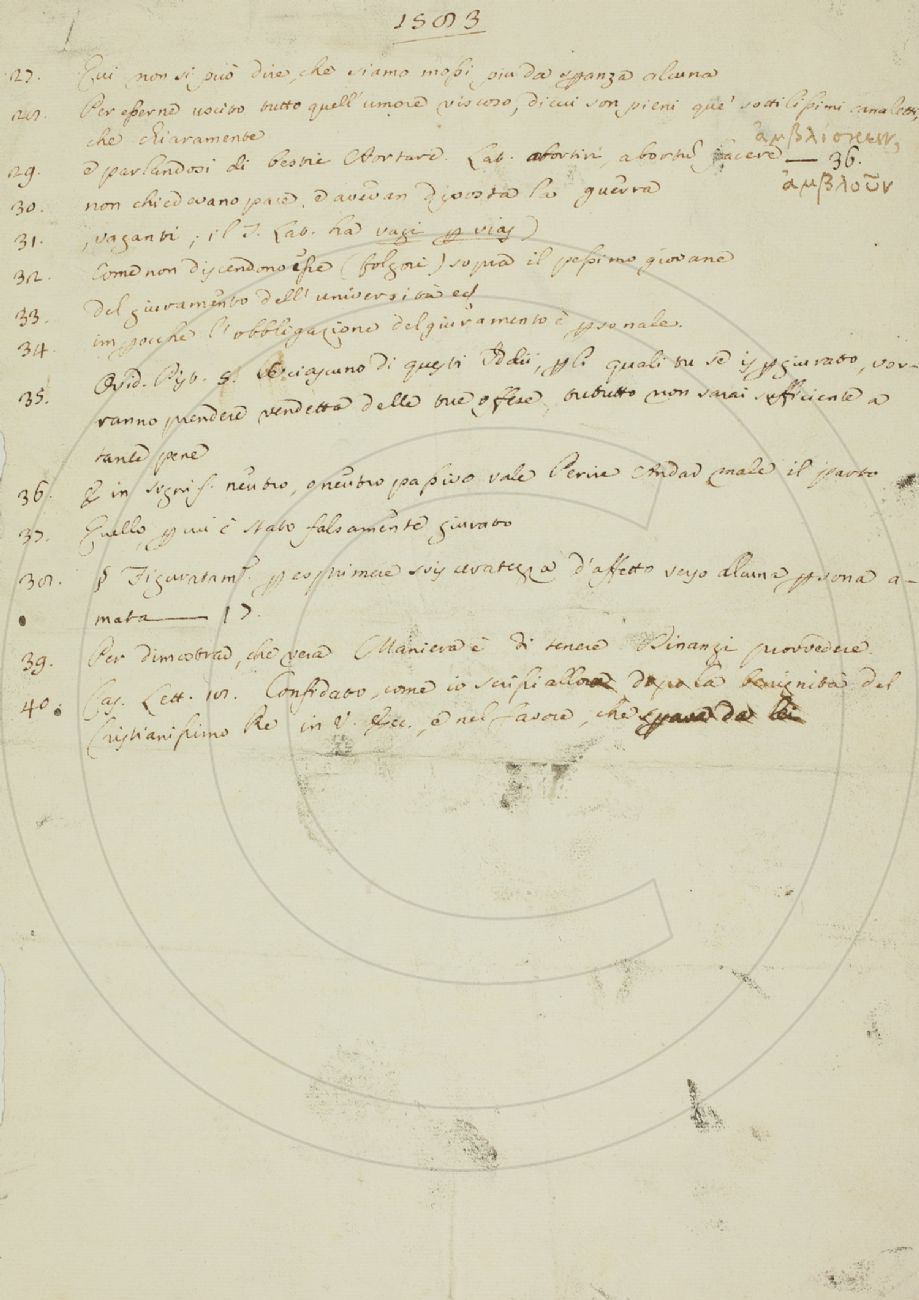 1583
27. Qui non si può dire, che siamo mossi più da speranza alcuna
28. Per esserne uscito tutto quell' umore viscoso, di cui son pieni que' sottilissimi canaletti,
che chiaramente
ἀμβλίσκειν,
29. e parlandosi di bestie Abortare. Lat. abortiri, abortum facere — 36.
ἀμβλοῦν
30. non chiedevano pace, e avevan disposta la guerra
31. , vaganti ; il T. Lat. ha vagi per vias )
32. Come non discendono esse (folgori) sopra il pessimo giovane
33. Del giuramento dell' università ec
34. imperocchè l' obbligazione del giuramento è personale.
35. Ovid. Pist. S. Se ciascuno di questi Iddii, per li quali tu se' ispergiurato, vor-
ranno prendere vendetta delle tue offese, tu tutto non sarai sufficiente a
tante pene
36. § in signif. neutro, o neutro passivo vale Perire Andar male il parto
37. Quello, per cui è stato falsamente giurato
38. § Figuratam. per esprimere svisceratezza d' affetto verso alcuna persona a-
mata — 17.
39. Per dimostrar, che vera Maniera è di tenere Dinanzi provvedere
40. Cas. Lett. 18. Confidato, come io scrissi allora dopo la benignità del
Cristianissimo Re in V. Ecc. e nel favore, che